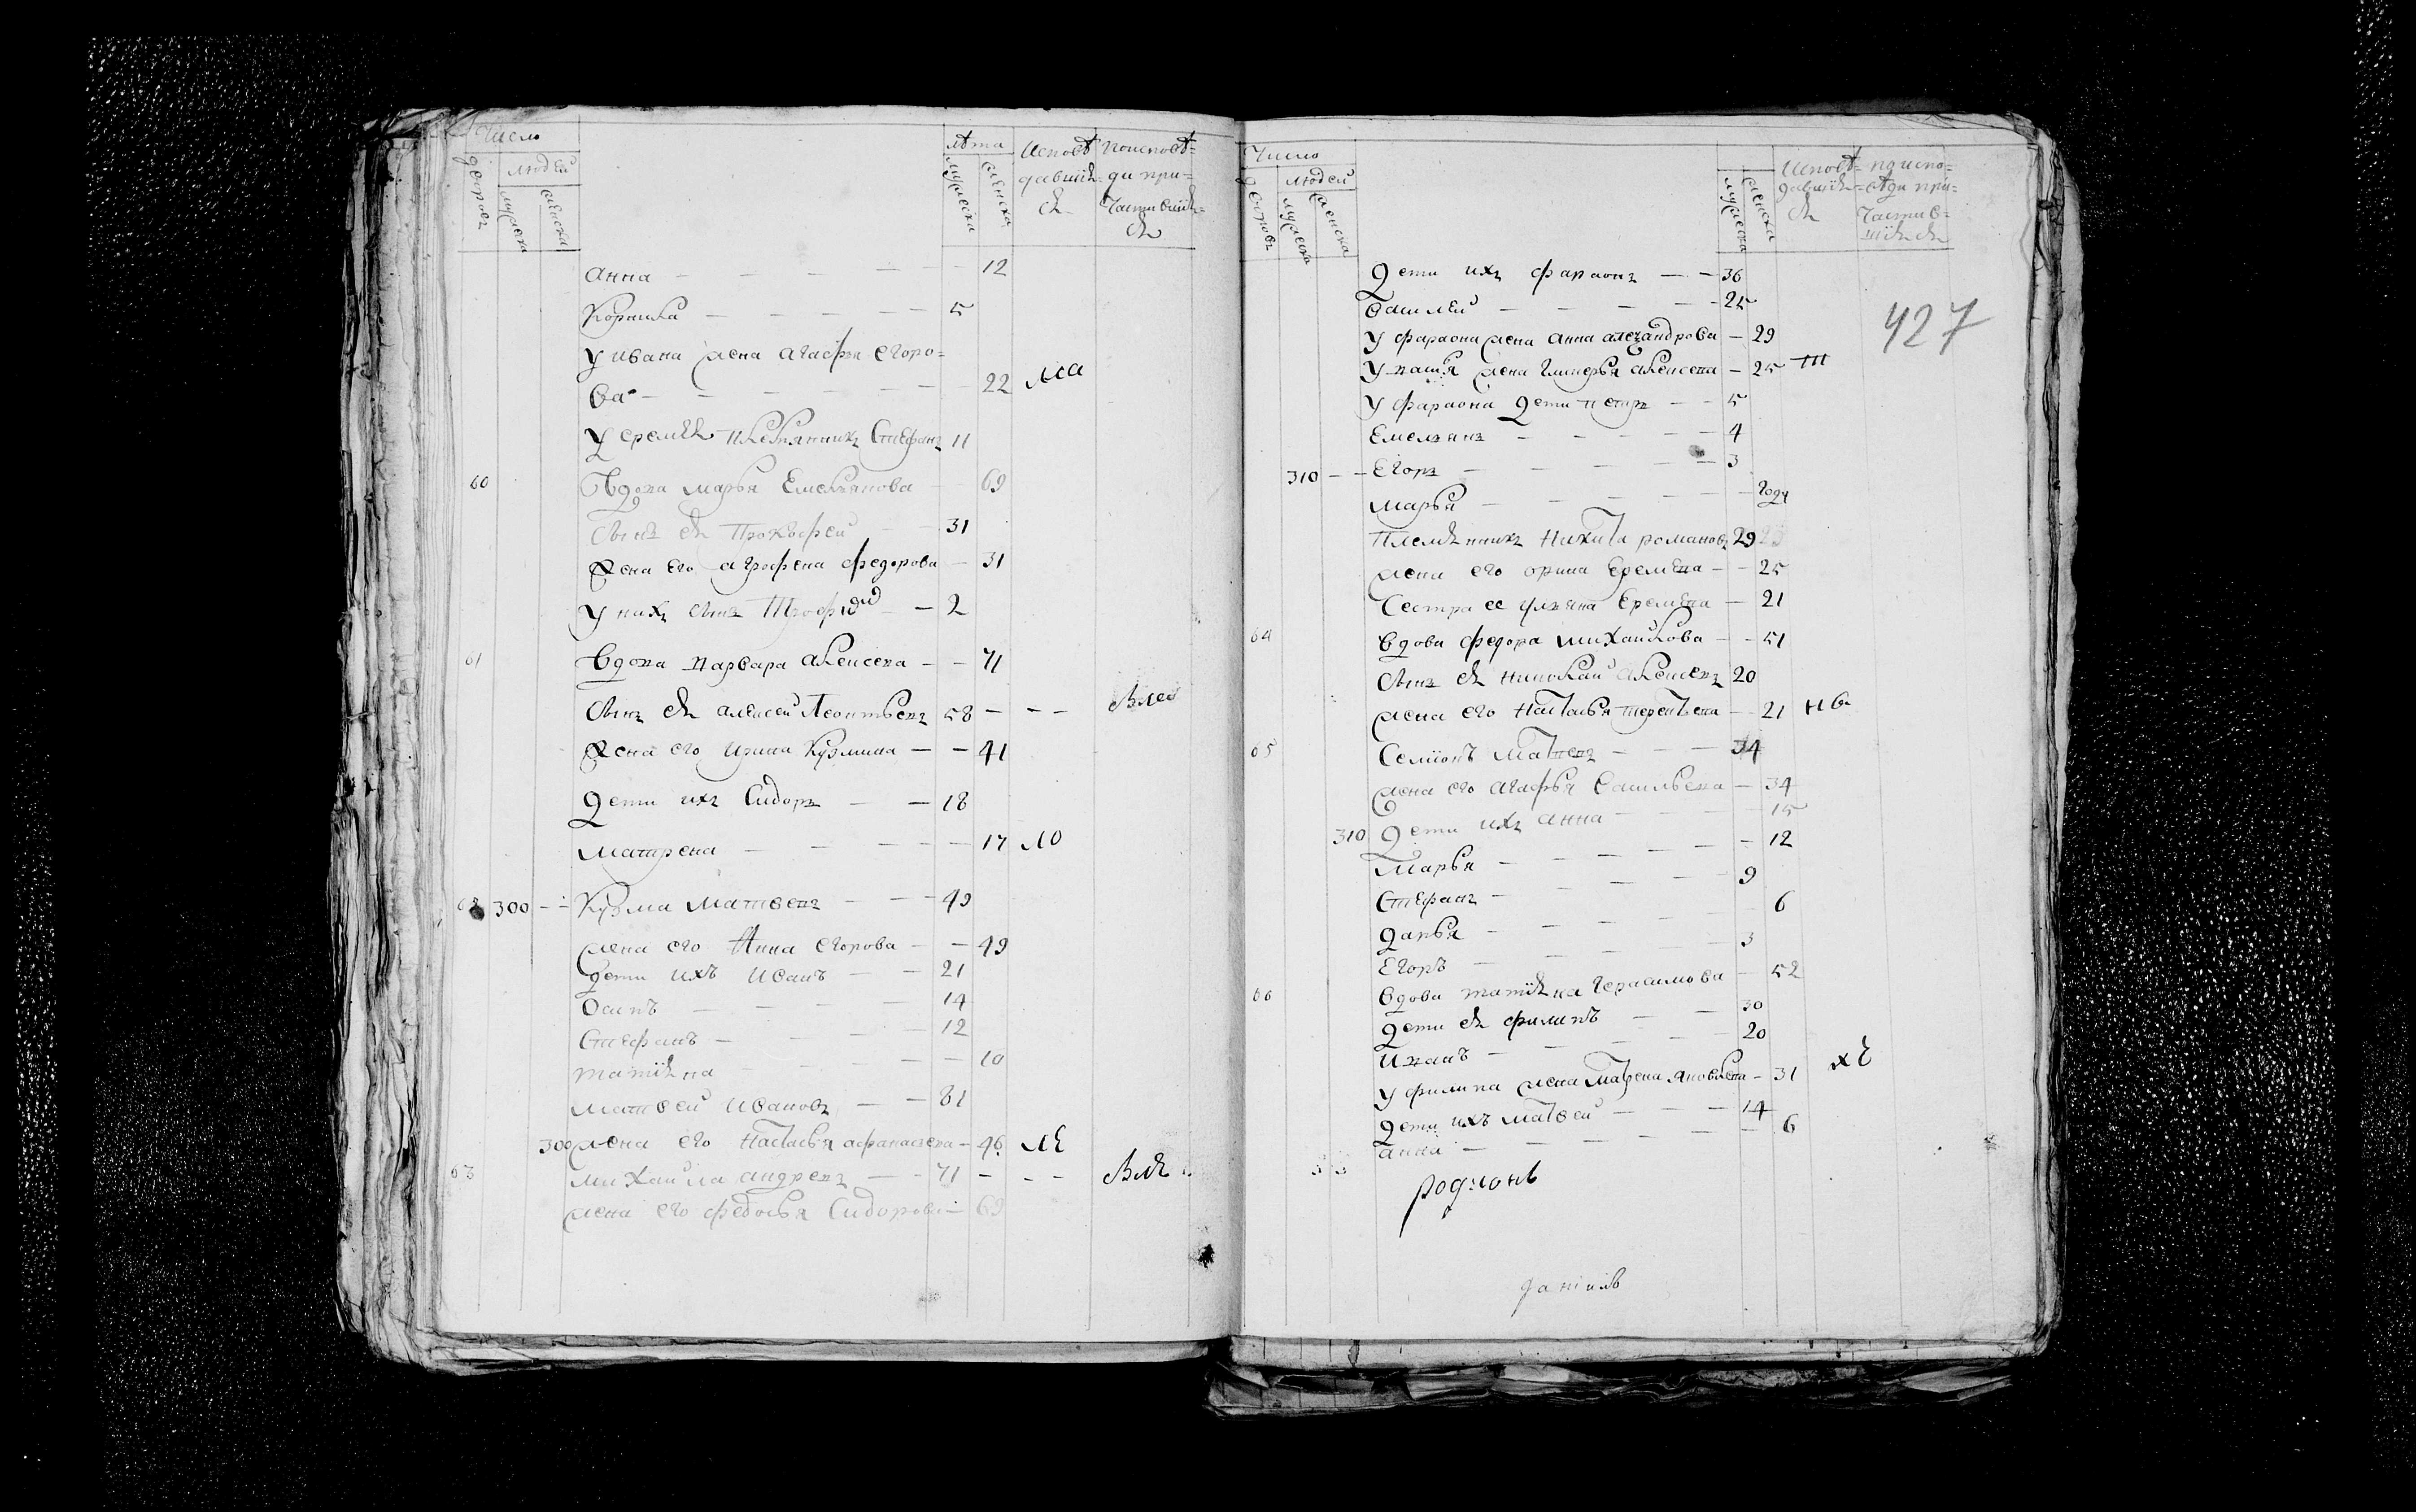 Число
людей
дворовъ
мужеска
женска
лѣта
мужеска
женска
Исповѣ
давшїѧ
сѧ
Поисповѣ=
ди при=
частившїѧ=
сѧ
Анна — 12
Корнила — 5
У Ивана жена Агафья Егоро=
ва — 22
У Еремѣя племянникъ Стефанъ 11
60 Вдова Марья Емельянова — 69
Сынъ еѧ Прокофей — 31
Жена его Аграфена Федорова — 31
У нихъ сынъ Трофим — 2
61 Вдова Варвара Алексеева — 71
Сынъ еѧ Алексей Леонтьевъ 58 — —
Жена его Ирина Кузмина — 41
Дети ихъ Сидоръ — 18
Матрена — 17
62 300 — Кузма Матвеевъ — 49
Жена его Анна Егорова — 49
Дети ихъ Иванъ — 21
Осипъ — 14
Стефанъ — 12
Татїѧна — 10
Матвей Ивановъ — 81
300 Жена его Настасья Афанасьева — 46
63 Михайла Андреевъ — 71 — —
Жена его Федосья Сидорова — 69
Число
людей
дворовъ
мужеска
женска
мужеска
женска
Исповѣ=
давшїѧ=
сѧ
поиспо=
вѣди при=
частив=
шїѧсѧ
427
Дети ихъ Фараонъ — 36
Василей — 25
У Фараона жена Анна Александрова — 29
жена Алексеева — 25
У Фараона дети Петръ — 5
Емельянъ — 4
310 — Егоръ — 3
Марья — году
Племѧнникъ Никита Романовъ 29
Жена его Орина Еремѣева — 25
Сестра ее Ульяна Еремѣева — 21
64 Вдова Федора Михайлова — 51
Сынъ еѧ Николай Алексеевъ 20
Жена его Настасья Терентьева — 21
65 Семїонъ Матвеевъ — 34
Жена его Агафья Васильева — 34
310 Дети ихъ Анна — 15
Марья — 12
Стефанъ — 9
Дарья — 6
Егоръ — 3
66 Вдова Татїѧна Герасимова — 52
Дети еѧ Филипъ — 30
Иванъ — 20
У Филипа жена Матрена Яковлева — 31
Дети ихъ Матвей — 14
Анна — 6
Родионъ
Данїилъ